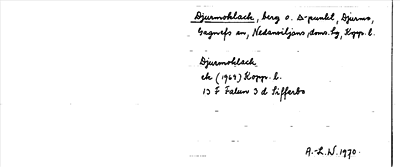 Djurmoklack, berg o. D-punkt, Djurmo,
Gagnefs sn, Nedansiljans doms. hg, Kopp. l.
Djurmoklack
ek (1969) Kopp. l.
13 F Falun 3 d Sifferbo
A.-L. W. 1970.